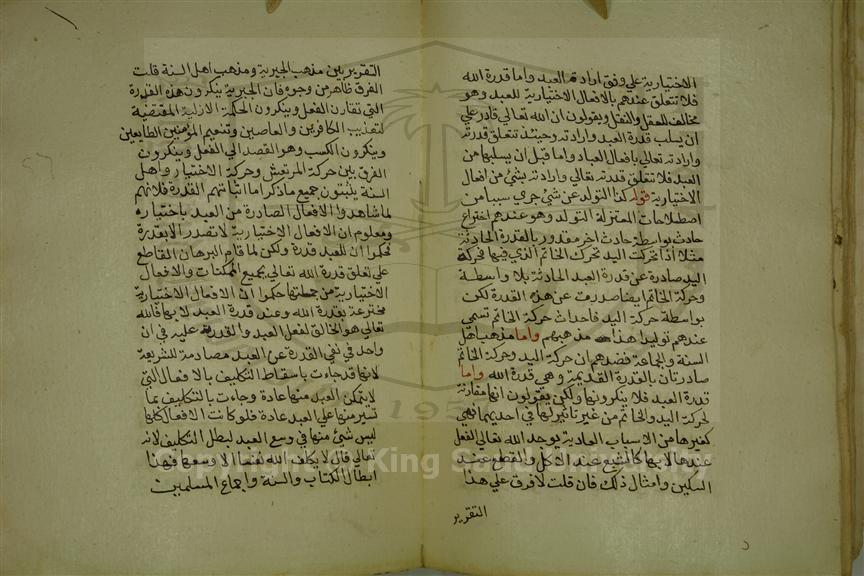 الاختيارية علي وفق ارادة العبد واما قدرة الله
فلا تتعلق عندهم بالافعال الاختيارية للعبد وهو
مخالف للعقل والنقل ويقولون ان الله تعالي قادر علي
ان يسلب قدرة العبد وارادته وحينئذ تتعلق قدرته
وارادته تعالي بافعال العباد واما قبل ان يسلبها من
العبد فلا تتعلق قدرته تعالي وارادته بشئ من افعال
الاختيارية قوله كذا التولد عن شئ جري سببا من
اصطلاحات المعتزلة التولد وهو عندهم اختراع
حادث بواسطة حادث اخر مقدور بالقدرة الحادثة
مثلا اذا تحركت اليد تحرك الخاتم الذي فيها فحركة
اليد صادرة عن قدرة العبد الحادثة بلا واسطة
وحركة الخاتم ايضا صدرت عن هذه القدرة لكن
بواسطة حركة اليد فاحداث حركة الخاتم تسمي
عندهم توليدا هذا مذهبهم واما مذهب اهل
السنة والجماعة فعندهم ان حركة اليد وحركة الخاتم
صادرتان بالقدرة القديمة وهي قدرة الله واما
قدرة العبد فلا ينكرونها ولكن يقولون انها مقارنة
لحركة اليد والخاتم من غير تاثير لها في احديهما فهي
كغيرها من الاسباب العادية يوجد الله تعالي الفعل
عندها لا بها كالشبع عند الاكل والقطع عند
السكين وامثال ذلك فان قلت لا فرق علي هذا
التقرير
التقرير بين مذهب الجبرية ومذهب اهل السنة قلت
الفرق ظاهر من وجوه فان الجبرية ينكرون هذه القدرة
التي تقارن الفعل وينكرون الحكمة الازلية المقتضية
لتعذيب الكافرين والعاصين وتنعيم المؤمنين الطايعين
وينكرون الكسب وهو القصد الي الفعل وينكرون
الفرق بين حركة المرتعش وحركة الاختيار واهل
السنة يثبتون جميع ماذكر اما اثباتهم القدرة فلانهم
لما شاهدوا الافعال الصادرة من العبد باختياره
ومعلوم ان الافعال الاختيارية لا تصدر الا بقدرة
حكموا ان للعبد قدرة ولكن لما قام البرهان القاطع
علي تعلق قدرة الله تعالي بجميع الممكنات والافعال
الاختيارية من جملتها حكموا ان الافعال الاختيارية
مخترعة بقدرة الله وعند قدرة العبد لا بها فالله
تعالي هو الخالق لفعل العبد والقدرة عليه في ان
واحد في نفي القدرة عن العبد مصادمة للشريعة
لانها قد جاءت باسقاط التكليف بالافعال التي
لا يتمكن العبد منها عادة وجاءت بالتكليف بما
تيسر منها علي العبد عادة فلو كانت الافعال كلها
ليس شئ منها في وسع العبد لبطل التكليف لانه
تعالي قال لا يكلف الله نفسا الا وسعها فهذا
ابطال الكتاب والسنة واجماع المسلمين
Copyright © King Saud University
195